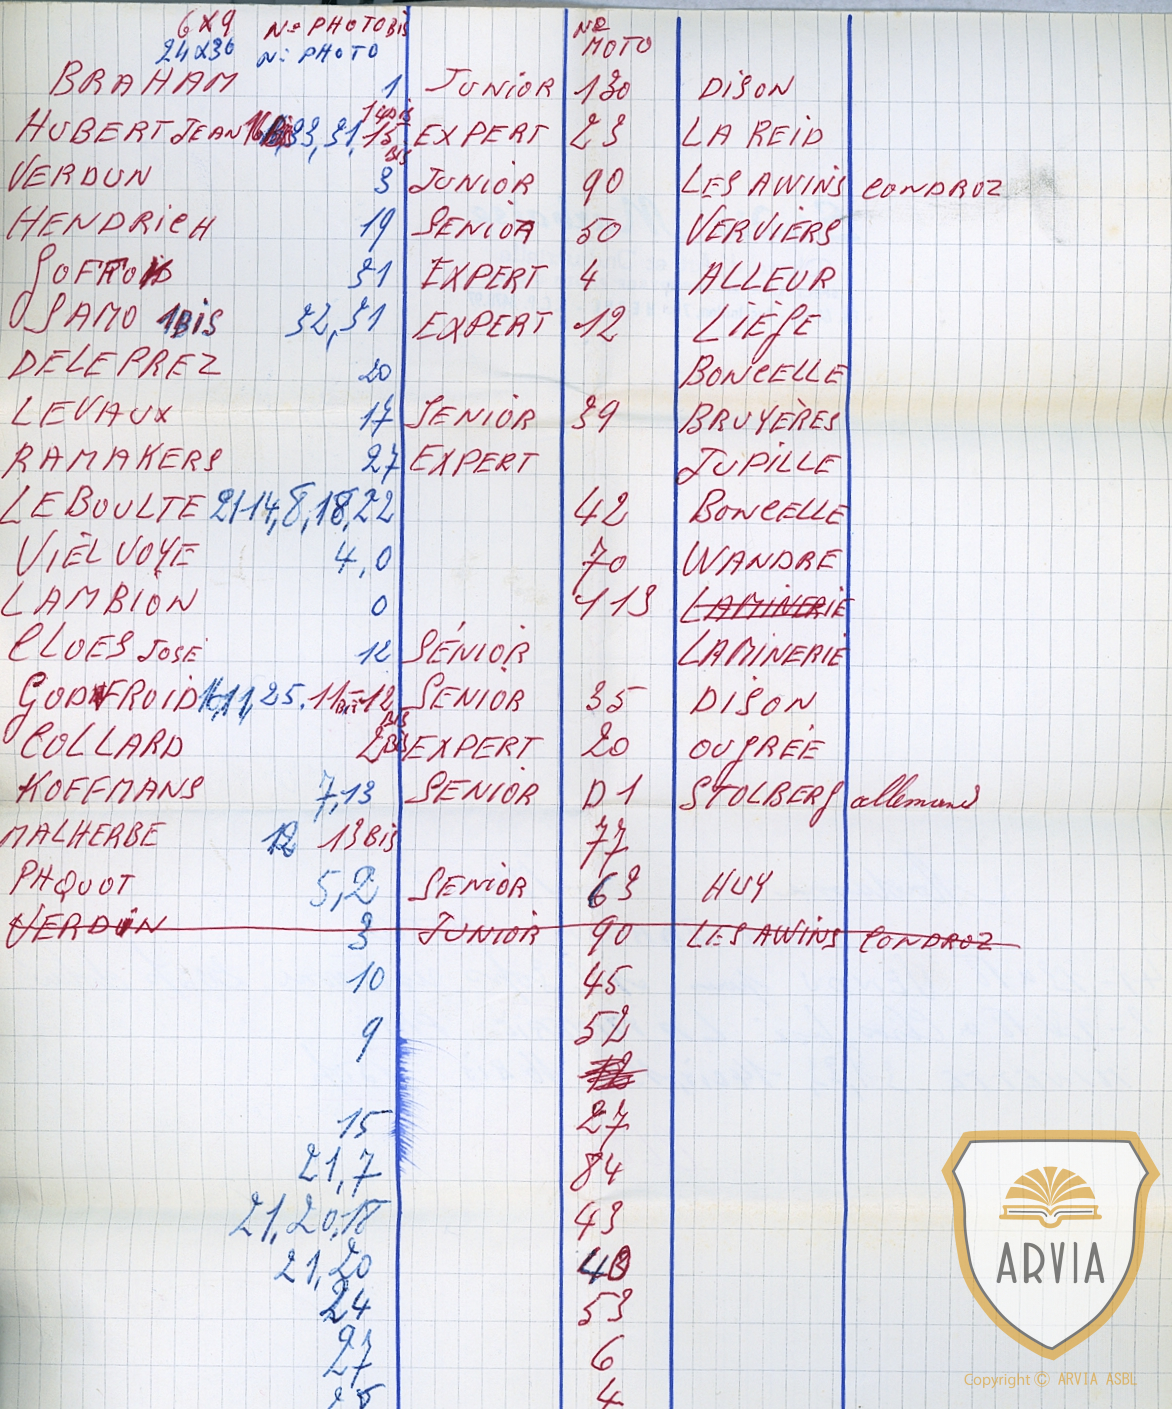 6X9 No PHOTO BIS No
24X36 No PHOTO MOTO
BRAHAM 1 JUNIOR 130 DISON
HUBERT JEAN 33, 31, 15 BIS EXPERT 23 LA REID
VERDUN 3 JUNIOR 90 LES AWINS CONDROZ
HENDRICH 19 SENIOR 50 VERVIERS
GOFFROID 31 EXPERT 4 ALLEUR
SAMO 1BIS 32, 31 EXPERT 12 LIÈGE
DELEPREZ 20 BONCELLE
LEVAUX 17 SENIOR 39 BRUYÈRES
RAMAKERS 27 EXPERT JUPILLE
LEBOULTE 21-14, 8, 18, 22 42 BONCELLE
VIELVOYE 4, 0 70 WANDRE
LAMBION 0 113 LAMINERIE
CLOES JOSÉ 12 SÉNIOR LAMINERIE
GODFROID 11, 25. 11 BIS-12 BIS SENIOR 35 DISON
COLLARD 2BIS EXPERT 20 OUGRÉE
KOFFMANS 7,13 SENIOR D1 STOLBERG allemand
MALHERBE 12 13BIS 77
PAQUOT 5,2 SENIOR 63 HUY
VERDUN 3 JUNIOR 90 LES AWINS CONDROZ
10 45
9 52
15 27
21,7 84
21,20,18 43
21,20
24 53
27 6
4
ARVIA
Copyright © ARVIA ASBL